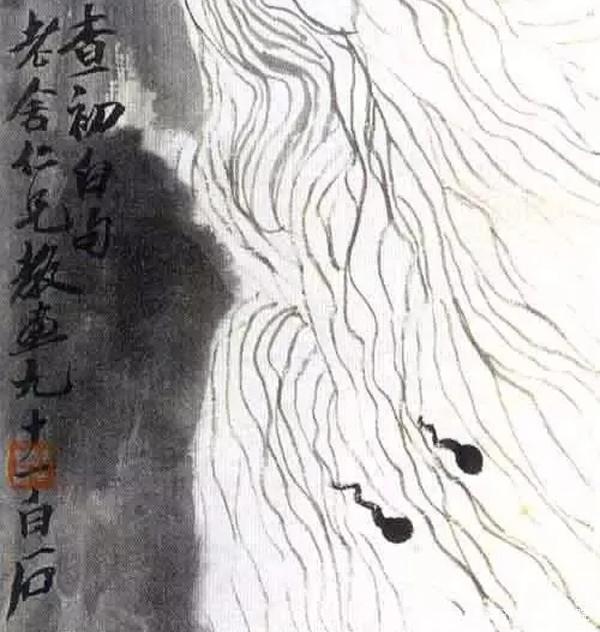 查初白句
老舍仁兄教画九十一白石